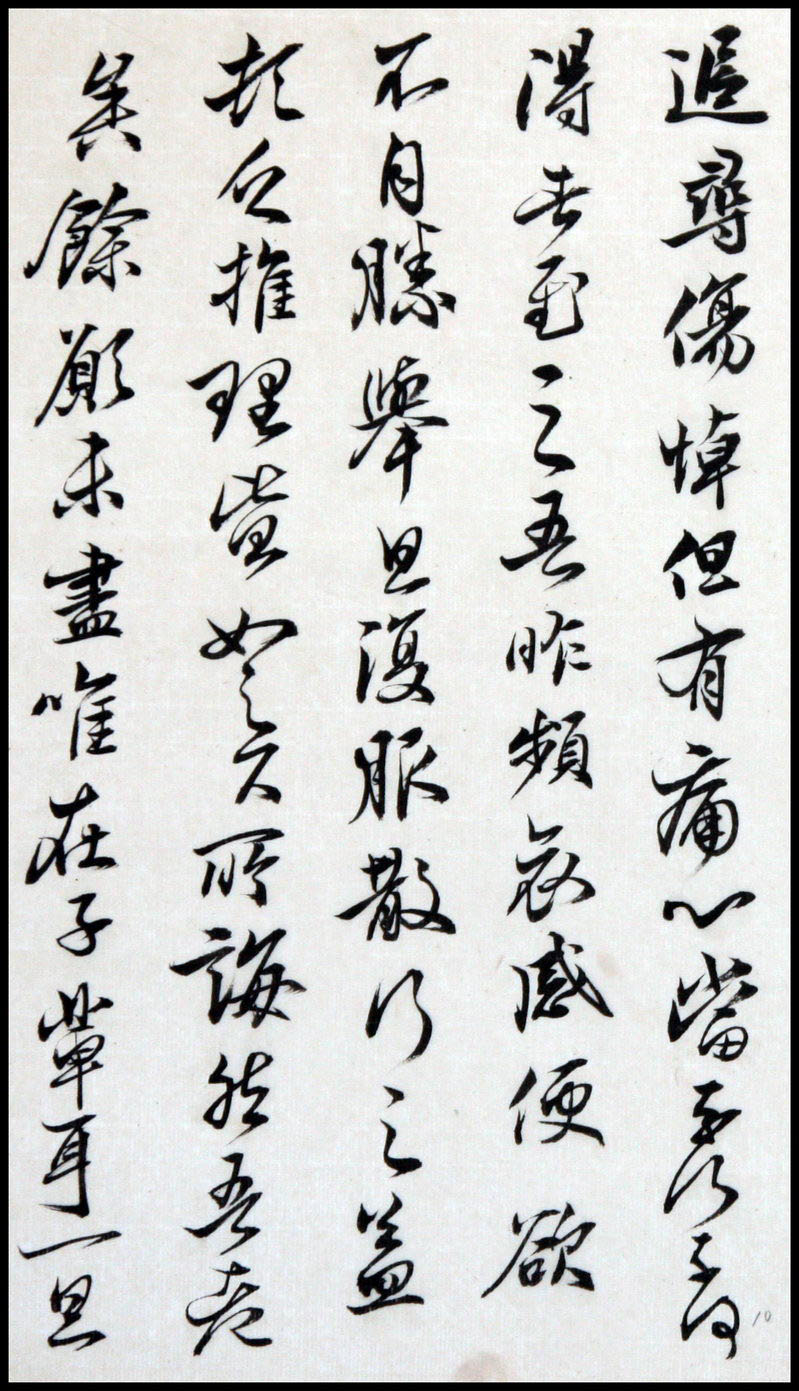 追尋傷悼但有痛心當奈何奈何
得告至之吾昨頻哀感便欲
不自勝舉旦復服散行之益
頓乏推理皆如足下所誨然吾老
矣餘願未盡唯在子輩耳一旦
10